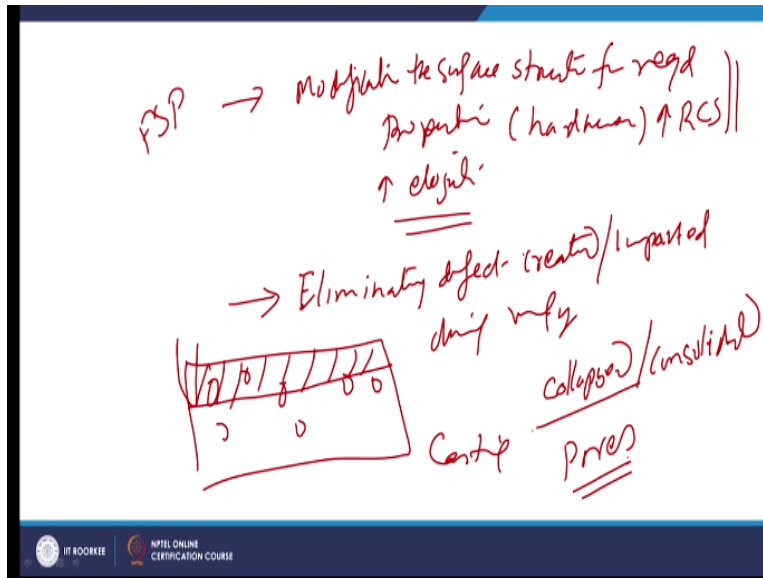 FSP → Modification the surface structure for reqd
Properties (hardness) ↑ RCS
↑ elogati
→ Eliminating defect created/imparted
during mfg
collapsed/consolidated
Casting Pores
IIT ROORKEE
NPTEL ONLINE
CERTIFICATION COURSE